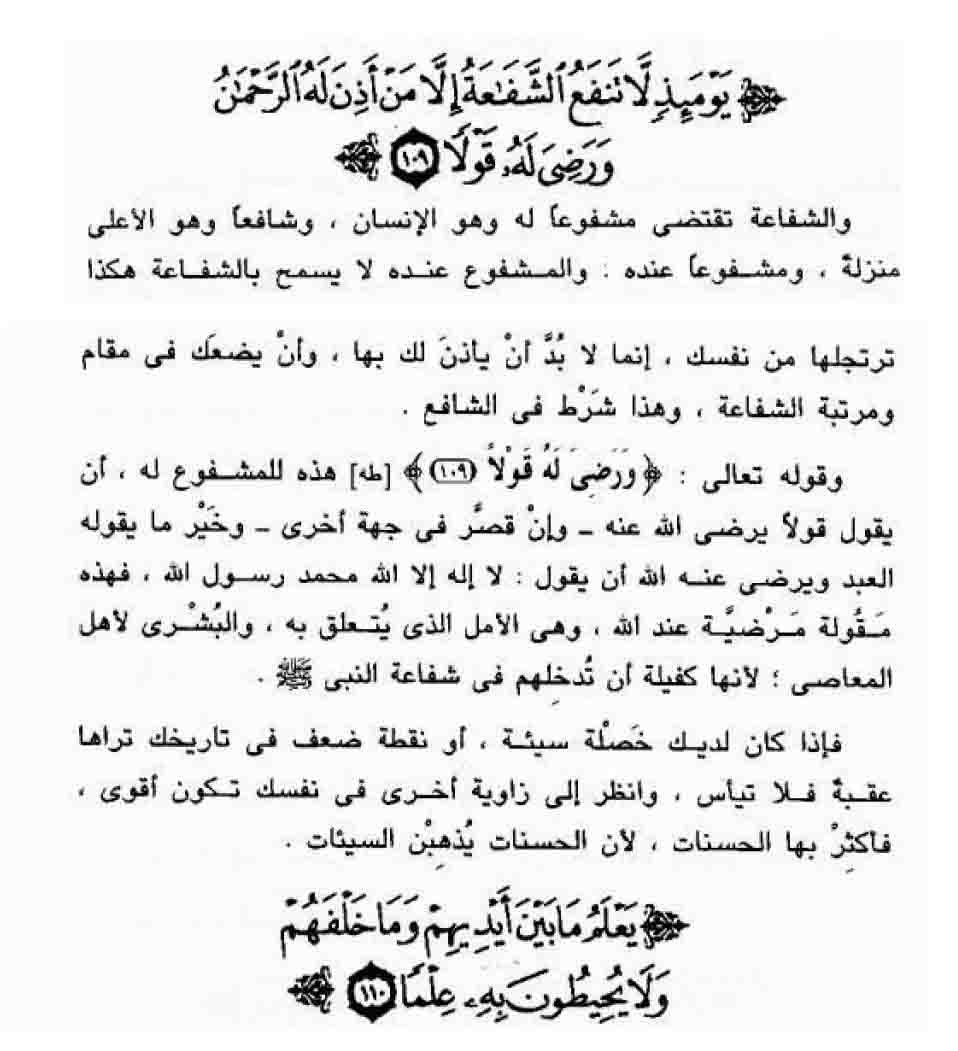 ﴿ يَوْمَئِذٍ لَّا تَنفَعُ ٱلشَّفَٰعَةُ إِلَّا مَنْ أَذِنَ لَهُ ٱلرَّحْمَٰنُ
وَرَضِىَ لَهُۥ قَوْلًا ١٠٩ ﴾
والشفاعة تقتضى مشفوعاً له وهو الإنسان ، وشافعاً وهو الأعلى
منزلةً ، ومشفوعاً عنده : والمشفوع عنده لا يسمح بالشفاعة هكذا
ترتجلها من نفسك ، إنما لا بُدَّ أنْ يأذنَ لك بها ، وأنْ يضعَك فى مقام
ومرتبة الشفاعة ، وهذا شَرْط فى الشافع .
وقوله تعالى : ﴿ وَرَضِىَ لَهُ قَوْلاً (١٠٩) ﴾ [طه] هذه للمشفوع له ، أن
يقول قولاً يرضى الله عنه ـ وإنْ قصَّر فى جهة أخرى ـ وخَيْر ما يقوله
العبد ويرضى عنه الله أن يقول : لا إله إلا الله محمد رسول الله ، فهذه
مَقُولة مَرْضيَّة عند الله ، وهى الأمل الذى يُتعلق به ، والبُشْرى لأهل
المعاصى ؛ لأنها كفيلة أن تُدخِلهم فى شفاعة النبى ﷺ .
فإذا كان لديك خَصْلة سيئة ، أو نقطة ضعف فى تاريخك تراها
عقبةً فلا تيأس ، وانظر إلى زاوية أخرى فى نفسك تكون أقوى ،
فأكثِرْ بها الحسنات ، لأن الحسنات يُذهِبْن السيئات .
﴿ يَعْلَمُ مَا بَيْنَ أَيْدِيهِمْ وَمَا خَلْفَهُمْ
وَلَا يُحِيطُونَ بِهِۦ عِلْمًا ١١٠ ﴾